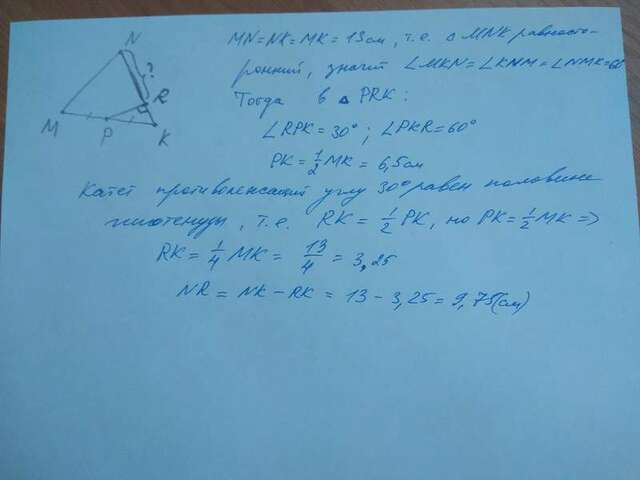 N
?
R
M
P
K
MN = NK = MK = 13 см, т.е. Δ MNK равносто-
ронний, значит ∠MKN = ∠KNM = ∠NMK = 60
Тогда в Δ PRK:
∠RPK = 30° ; ∠PKR = 60°
PK = 1/2 MK = 6,5 см
Катет противолежащий углу 30° равен половине
гипотенузы, т.е. RK = 1/2 PK, но PK = 1/2 MK =>
RK = 1/4 MK = 13/4 = 3,25
NR = NK - RK = 13 - 3,25 = 9,75 (см)